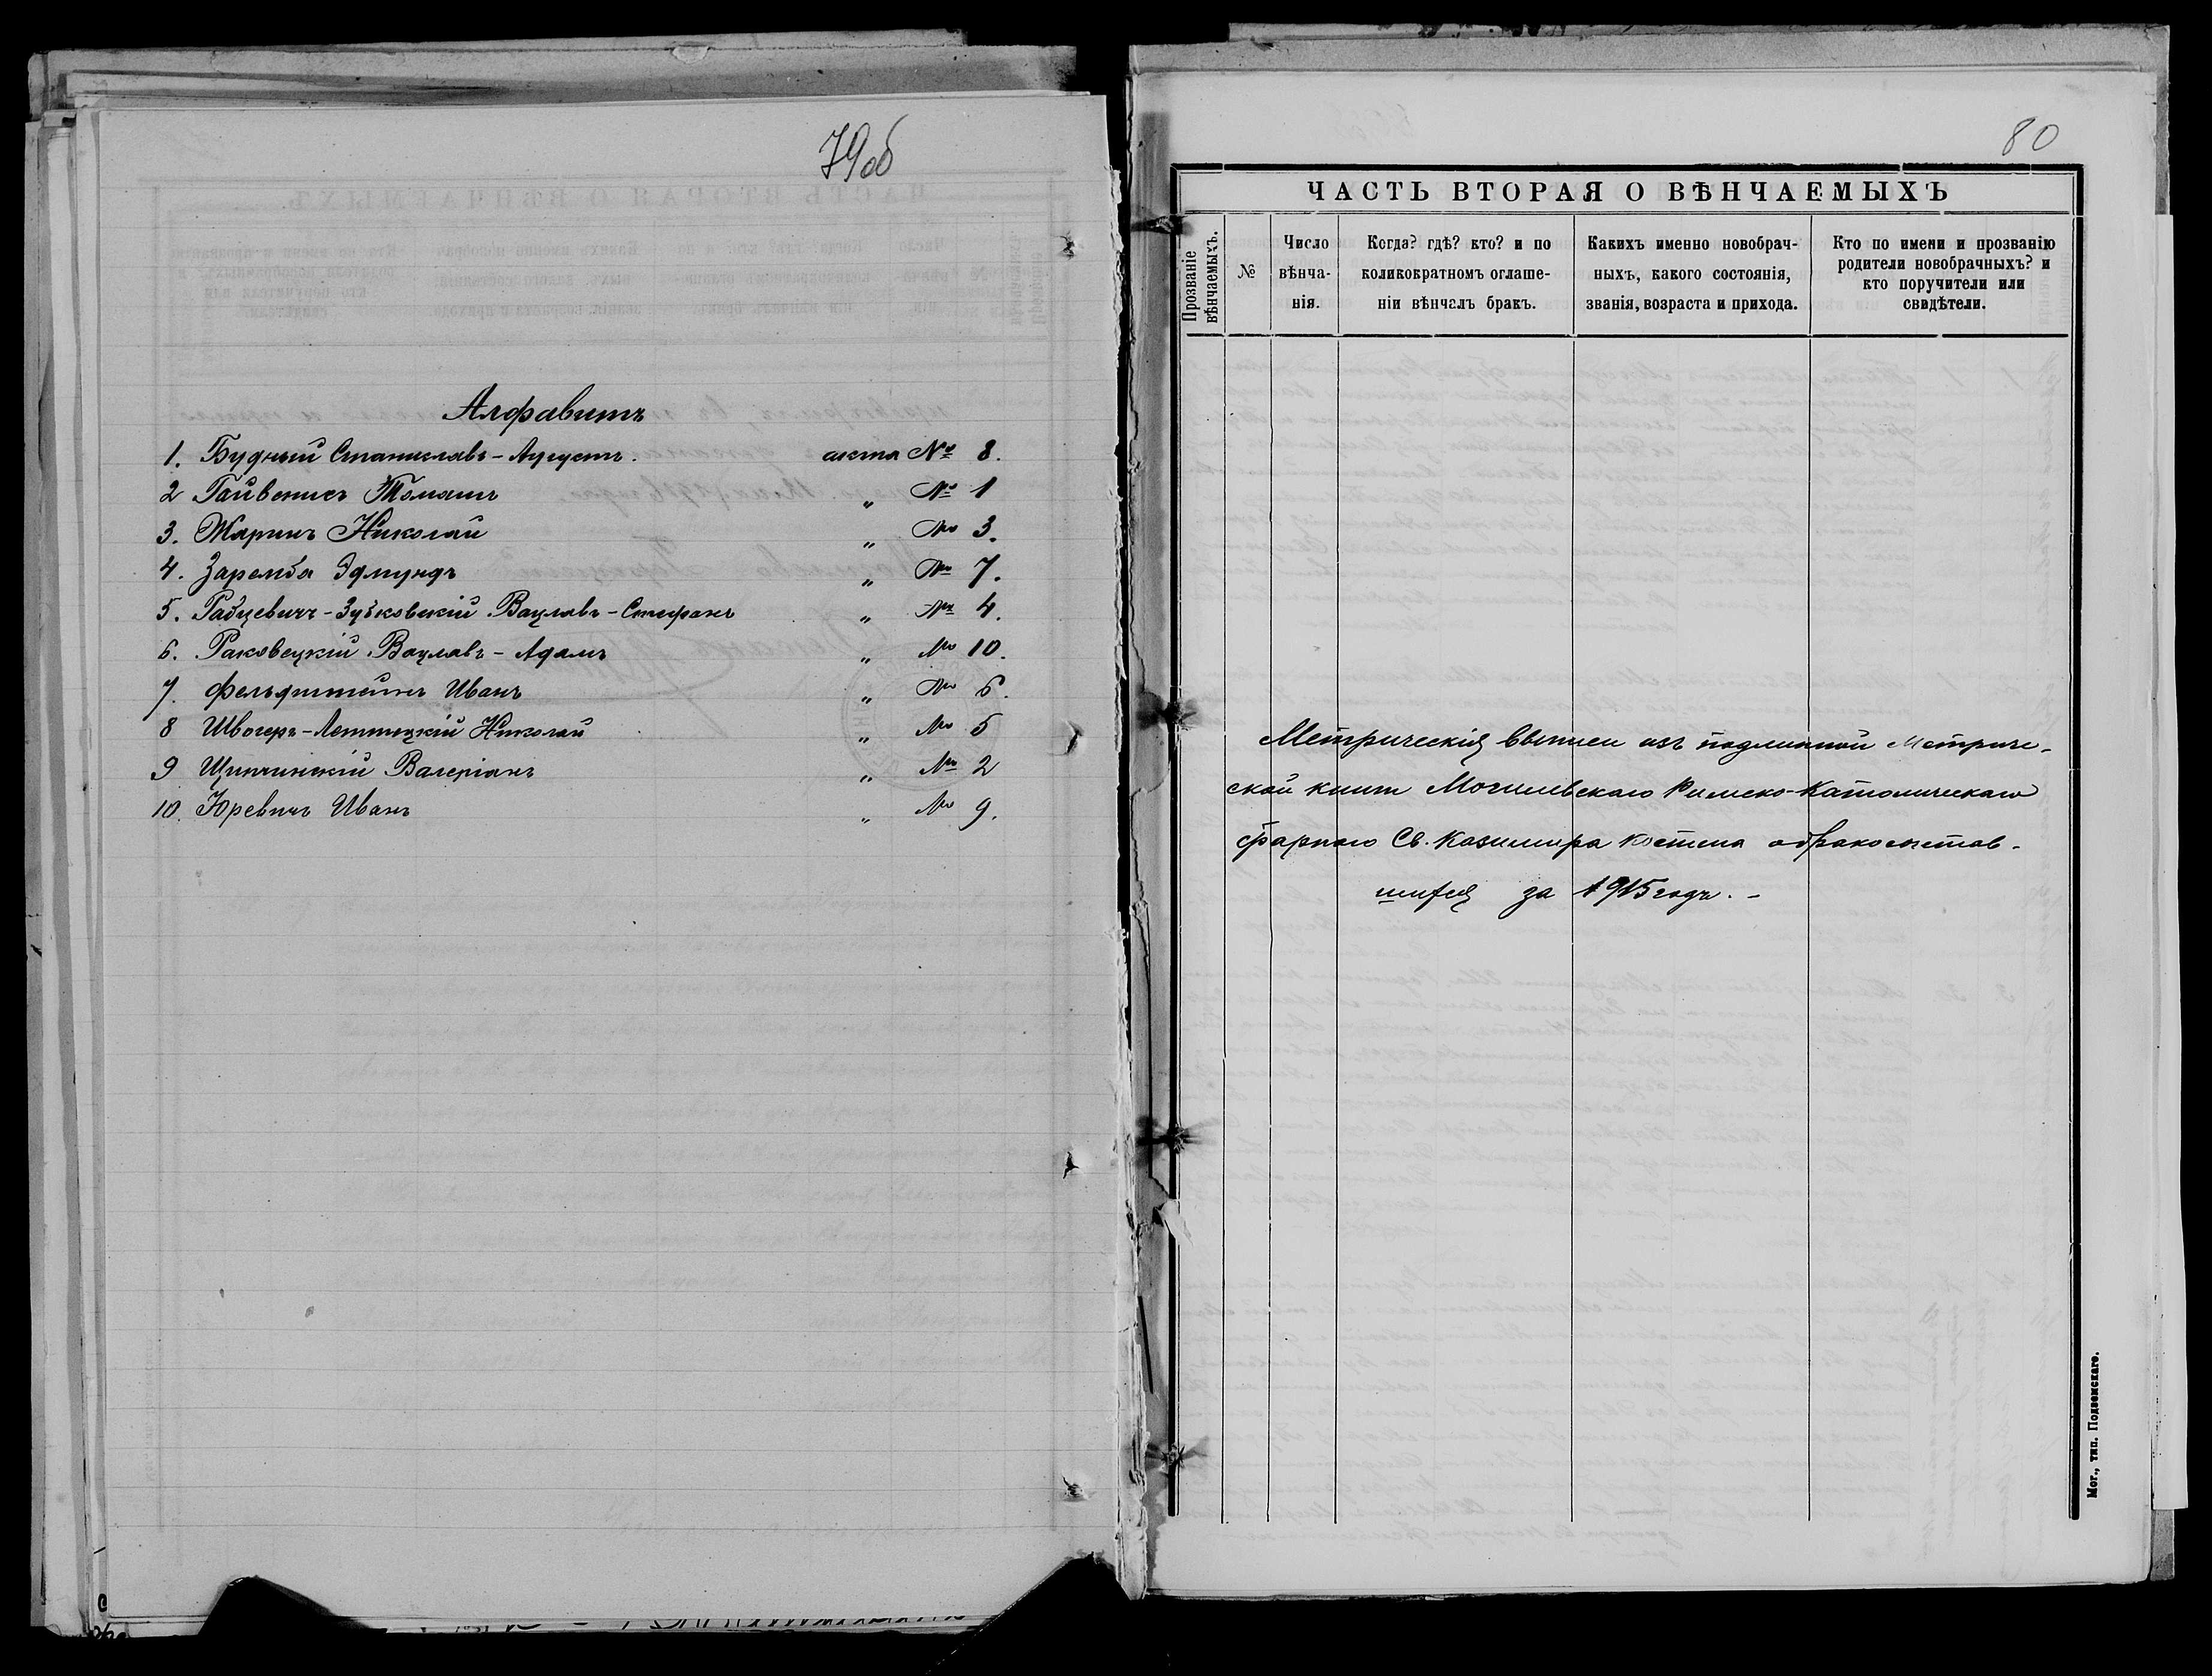 79об
Алфавитъ
1. Будный Станиславъ-Августъ. акта № 8.
2 Гайвенисъ Томашъ „ № 1
3. Жаринъ Николай „ № 3.
4. Заремба Эдмундъ „ № 7.
5. Рабцевичъ-Зубковскій Вацлавъ-Стефанъ „ № 4.
6. Раковецкій Вацлавъ-Адамъ „ № 10.
7. Фельдштейнъ Иванъ „ № 6.
8 Николай „ № 5
9 Валеріанъ „ № 2
10. Юревичъ Иванъ „ № 9.
80
ЧАСТЬ ВТОРАЯ О ВѢНЧАЕМЫХЪ
Прозваніе вѣнчаемыхъ.
№
Число
вѣнча-
нія.
Когда? гдѣ? кто? и по
коликократномъ оглаше-
ніи вѣнчалъ бракъ.
Какихъ именно новобрач-
ныхъ, какого состоянія,
званія, возраста и прихода.
Кто по имени и прозванію
родители новобрачныхъ? и
кто поручители или
свидѣтели.
Метрическія выписи изъ подлинной Метриче-
ской книги Могилевскаго Римско-Католическаго
фарнаго Св. Казимира костела о бракосочетав-
шихся за 1915 годъ. -
Мог., тип. Подземскаго.